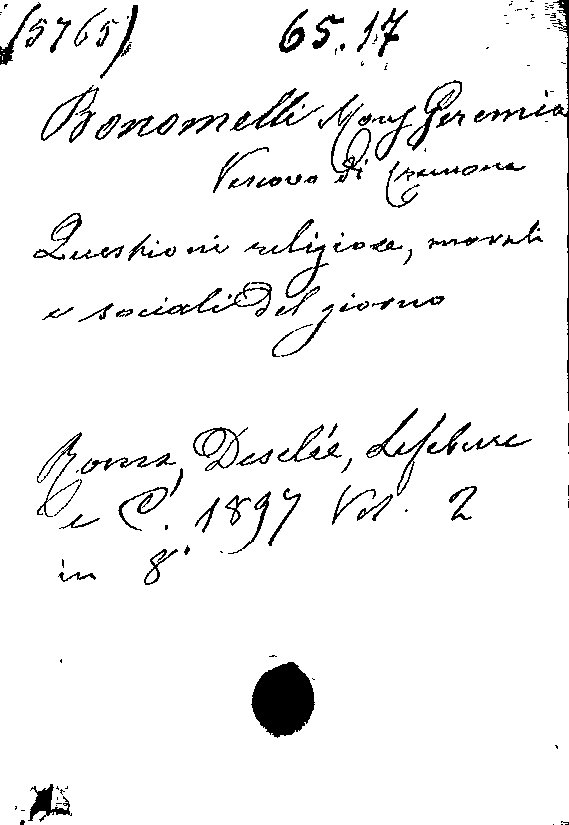 (5765) 65.17
Bonomelli Mons Geremia
Vescovo di Cremona
Questioni religiose, morali
e sociali del giorno
Roma, Desclée, Lefebure
e C. 1897 Vol. 2
in 8°